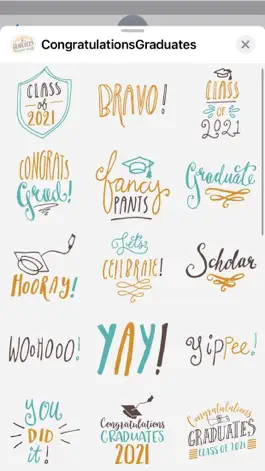 CongratulationsGraduates
CLASS
of
2021
BRAVO!
CLASS
OF
2021
CONGRATS
Grad!
fancy
PANTS
Graduate
HOORAY!
Let's
CELEBRATE!
Scholar
WOOHOOO!
YAY!
Yippee!
YOU
DID
it!
Congratulations
GRADUATES
2021
Congratulations
GRADUATES
CLASS OF 2021